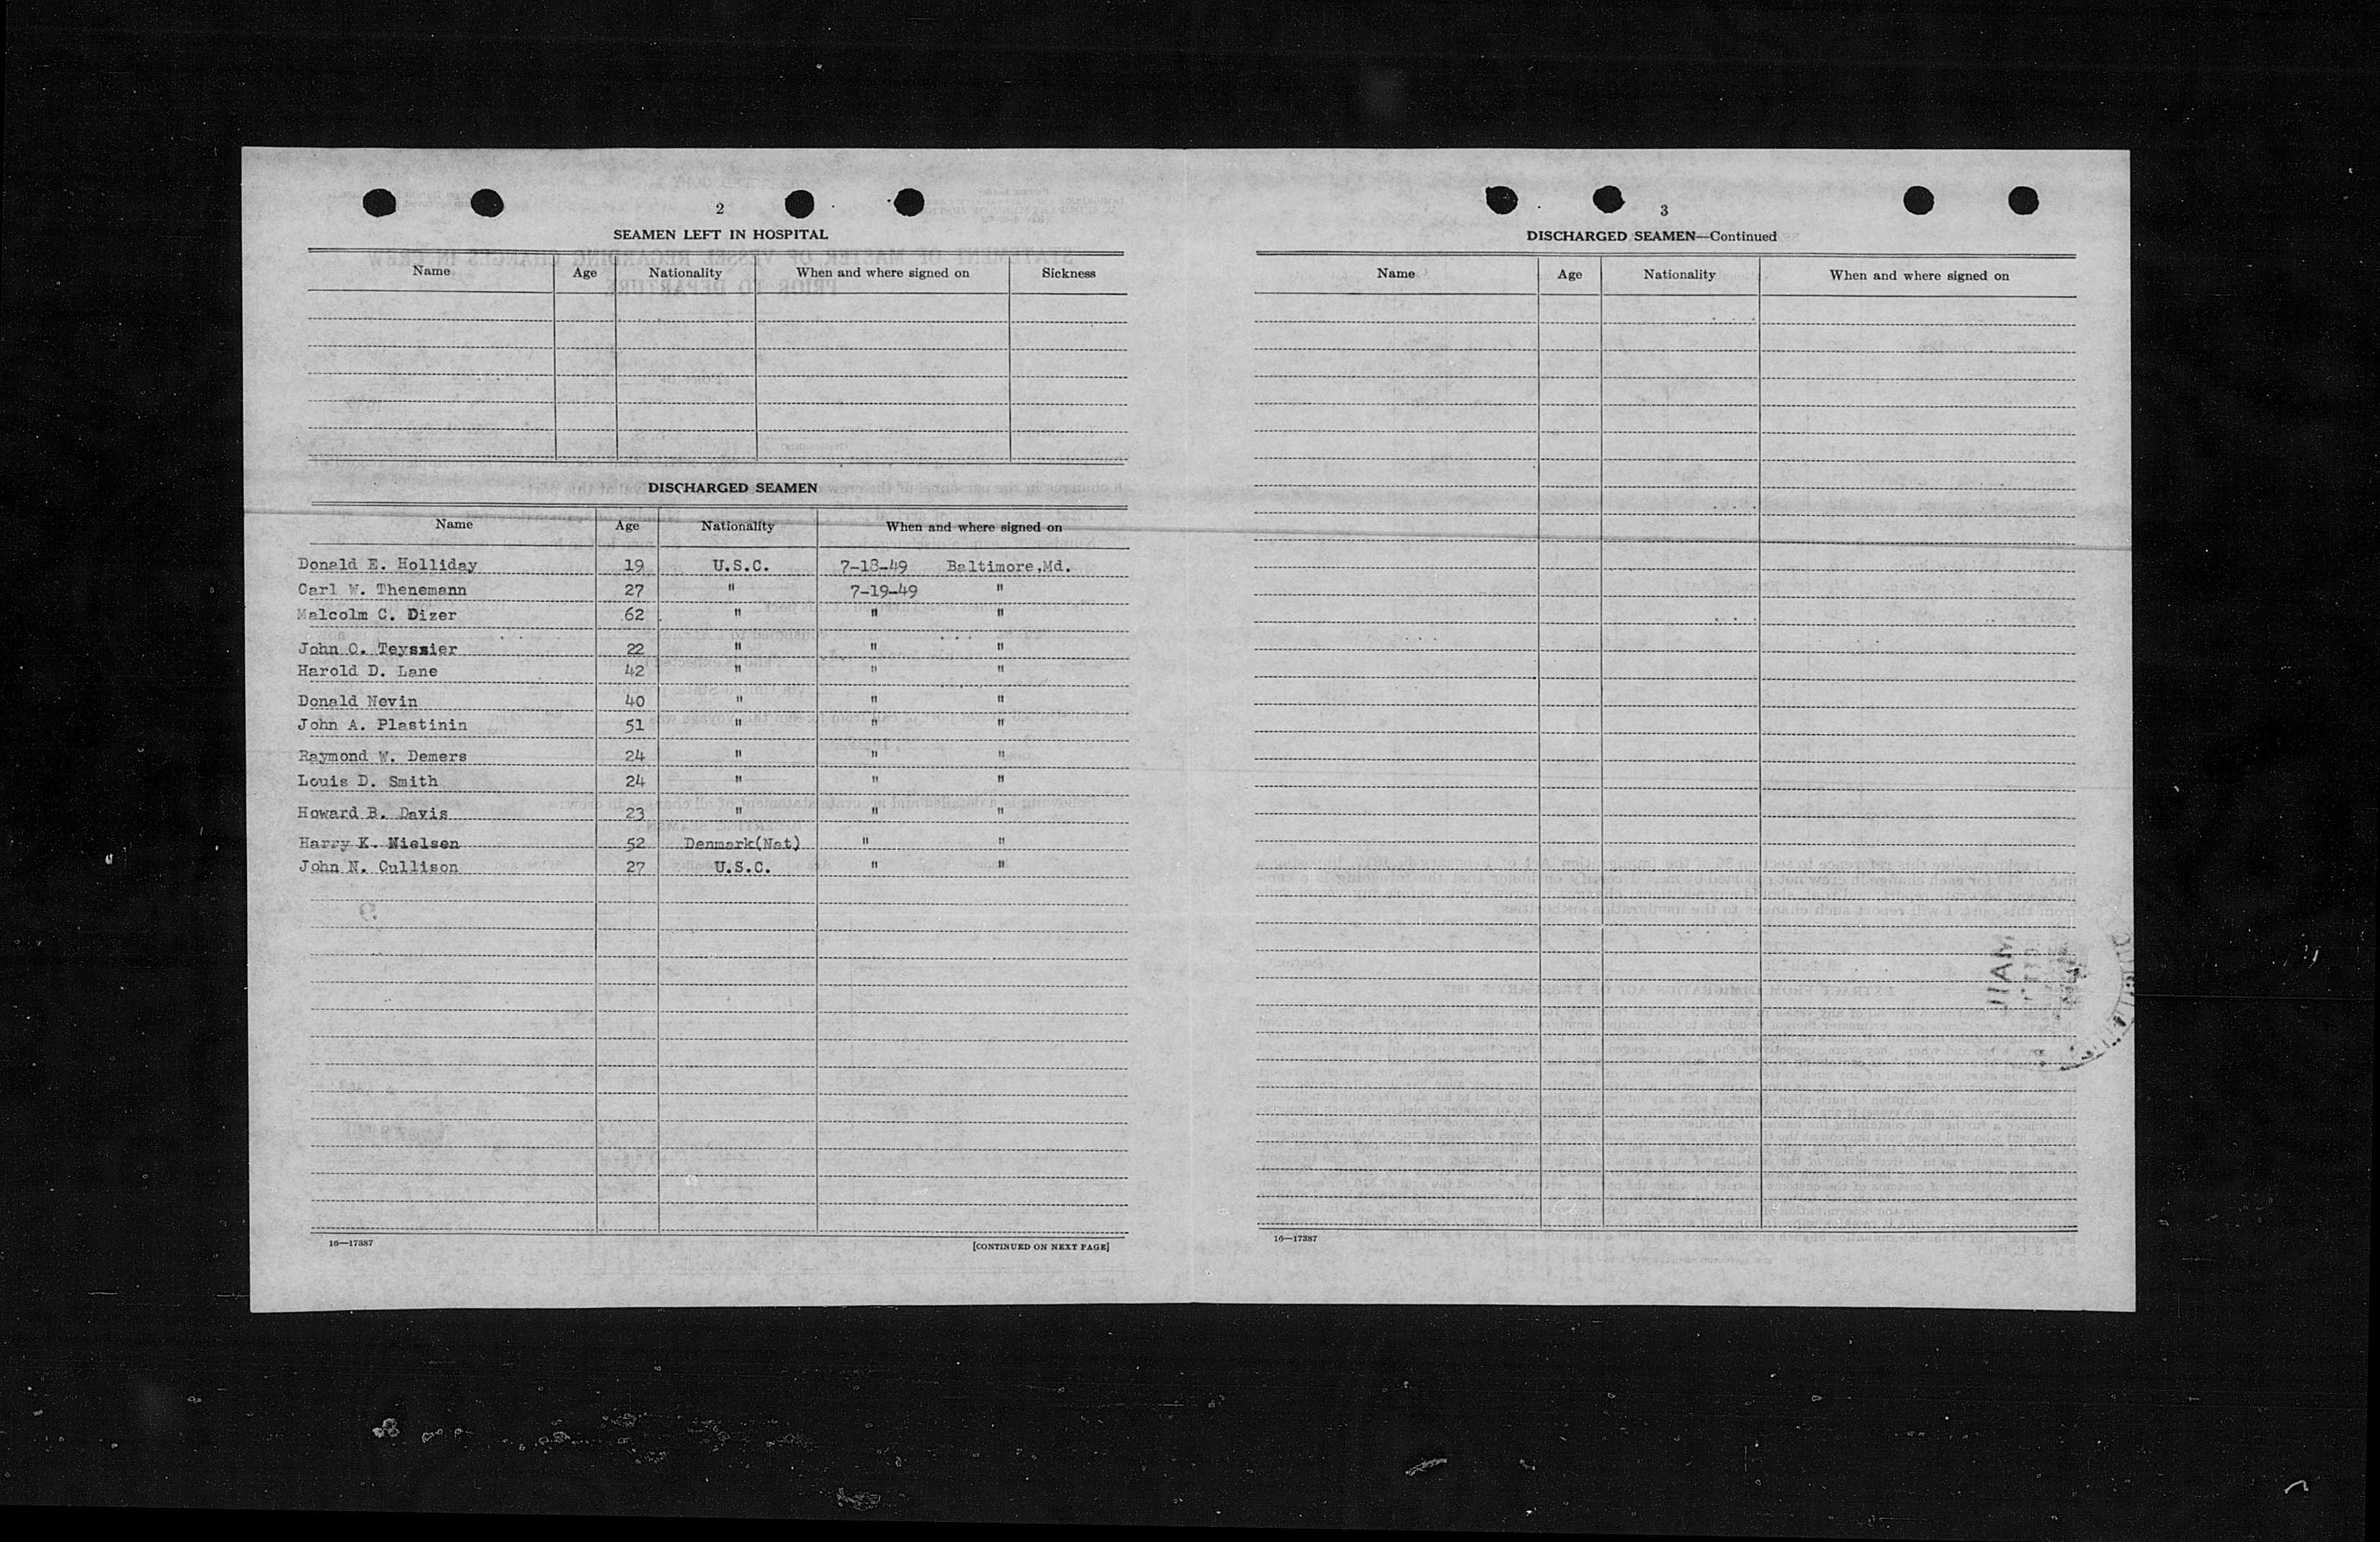 2
SEAMEN LEFT IN HOSPITAL
Name Age Nationality When and where signed on Sickness
DISCHARGED SEAMEN
Name Age Nationality When and where signed on
Donald E. Holliday 19 U.S.C. 7-18-49 Baltimore,Md.
Carl W. Thenemann 27 " 7-19-49 "
Malcolm C. Dizer 62 " " "
John O. Teyssier 22 " " "
Harold D. Lane 42 " " "
Donald Nevin 40 " " "
John A. Plastinin 51 " " "
Raymond W. Demers 24 " " "
Louis D. Smith 24 " " "
Howard B. Davis 23 " " "
Harry K. Nielsen 52 Denmark(Nat) " "
John N. Cullison 27 U.S.C. " "
16—17387
[CONTINUED ON NEXT PAGE]
3
DISCHARGED SEAMEN—Continued
Name Age Nationality When and where signed on
16—17387